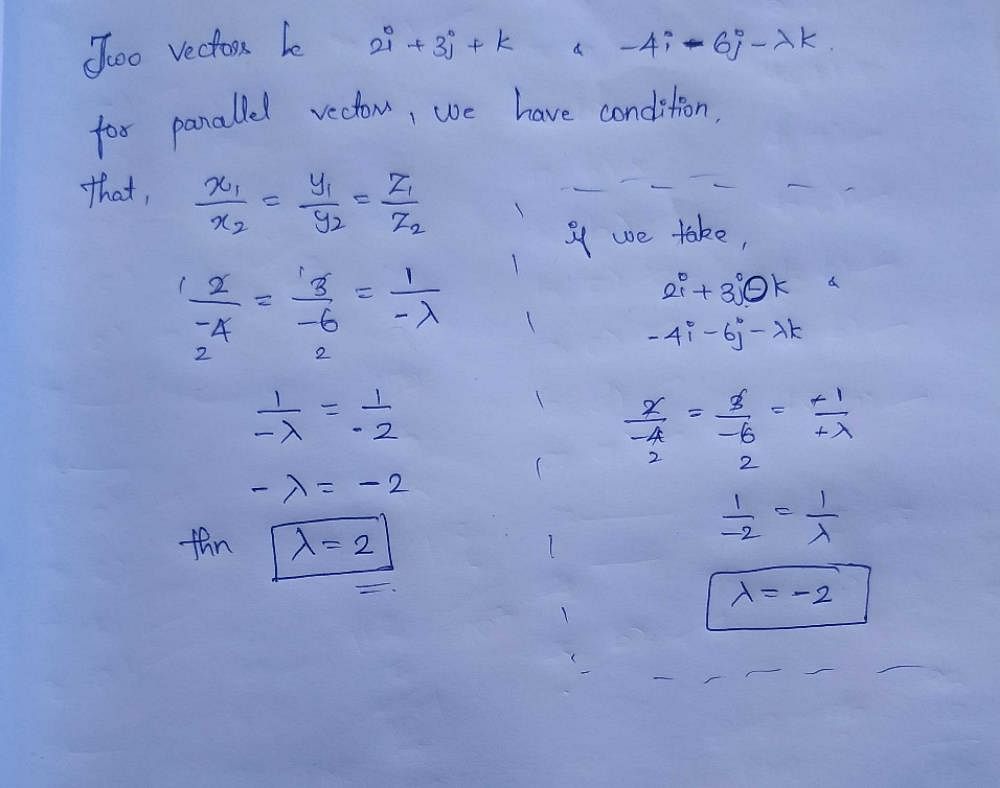 Two vectors be 2i + 3j + k & -4i - 6j - λk.
for parallel vectors, we have condition,
that, x₁/x₂ = y₁/y₂ = z₁/z₂
2/-4 = 3/-6 = 1/-λ
1/-λ = 1/-2
-λ = -2
thn λ = 2
if we take,
2i + 3j - k &
-4i - 6j - λk
2/-4 = 3/-6 = +1/+λ
1/-2 = 1/λ
λ = -2